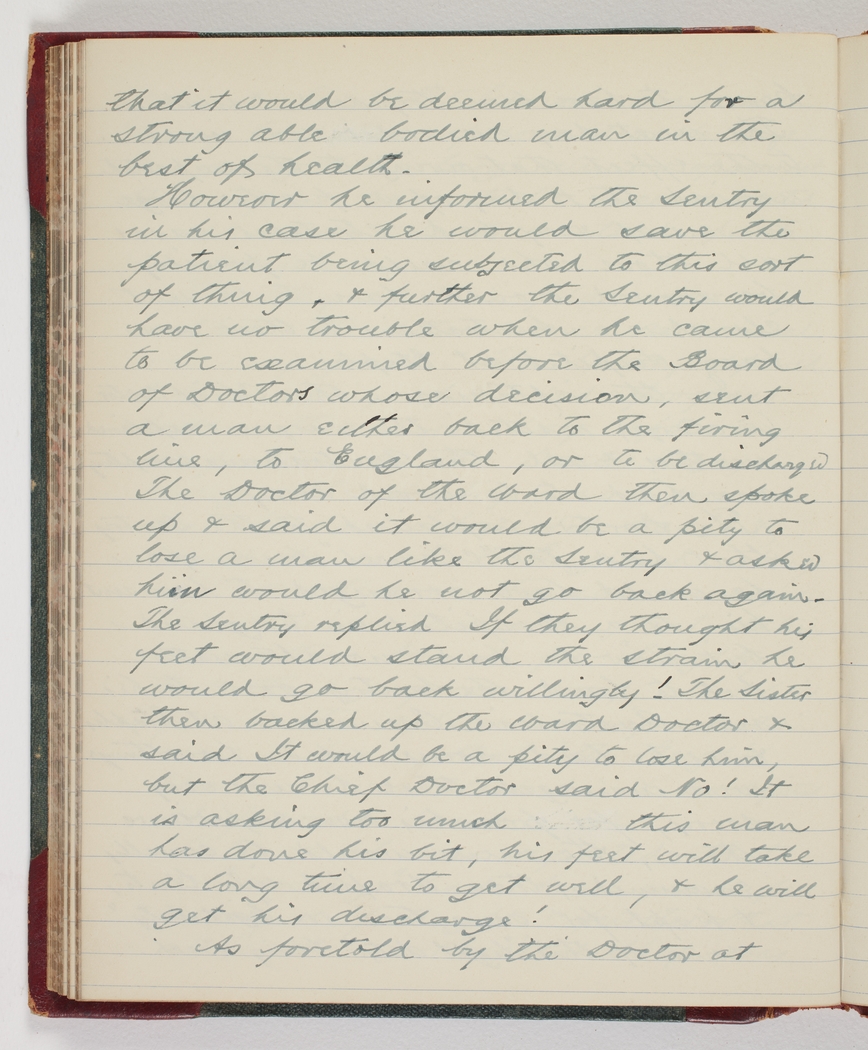 that it would be deemed hard for a
strong able bodied man in the
best of health.
However he informed the Sentry
in his case he would save the
patient being subjected to this sort
of thing. & further the Sentry would
have no trouble when he came
to be examined before the Board
of Doctors whose decision, sent
a man either back to the firing
line, to England, or to be discharged
The Doctor of the Ward then spoke
up & said it would be a pity to
lose a man like the Sentry & asked
him would he not go back again.
The Sentry replied If they thought his
feet would stand the strain he
would go back willingly! The Sister
then backed up the Ward Doctor &
said It would be a pity to lose him,
but the Chief Doctor said No! It
is asking too much this man
has done his bit, his feet will take
a long time to get well, & he will
get his discharge!
As foretold by the Doctor at